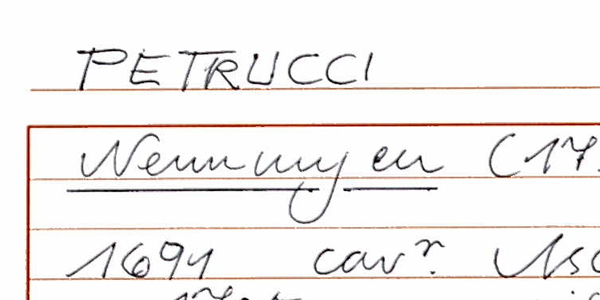 PETRUCCI
Nennungen (17
1691 cav.r